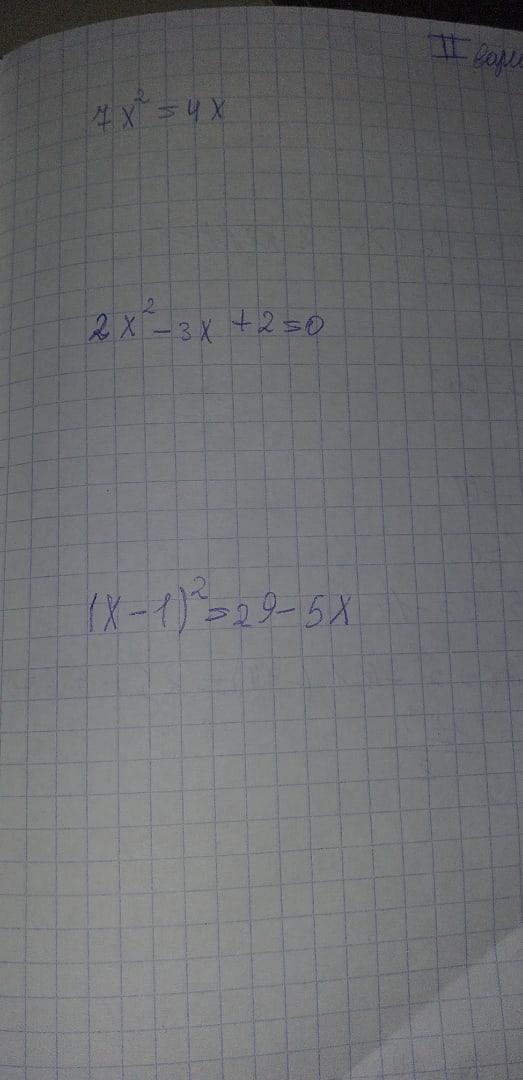 II вари
7x² = 4x
2x² - 3x + 2 = 0
(x - 1)² = 29 - 5x